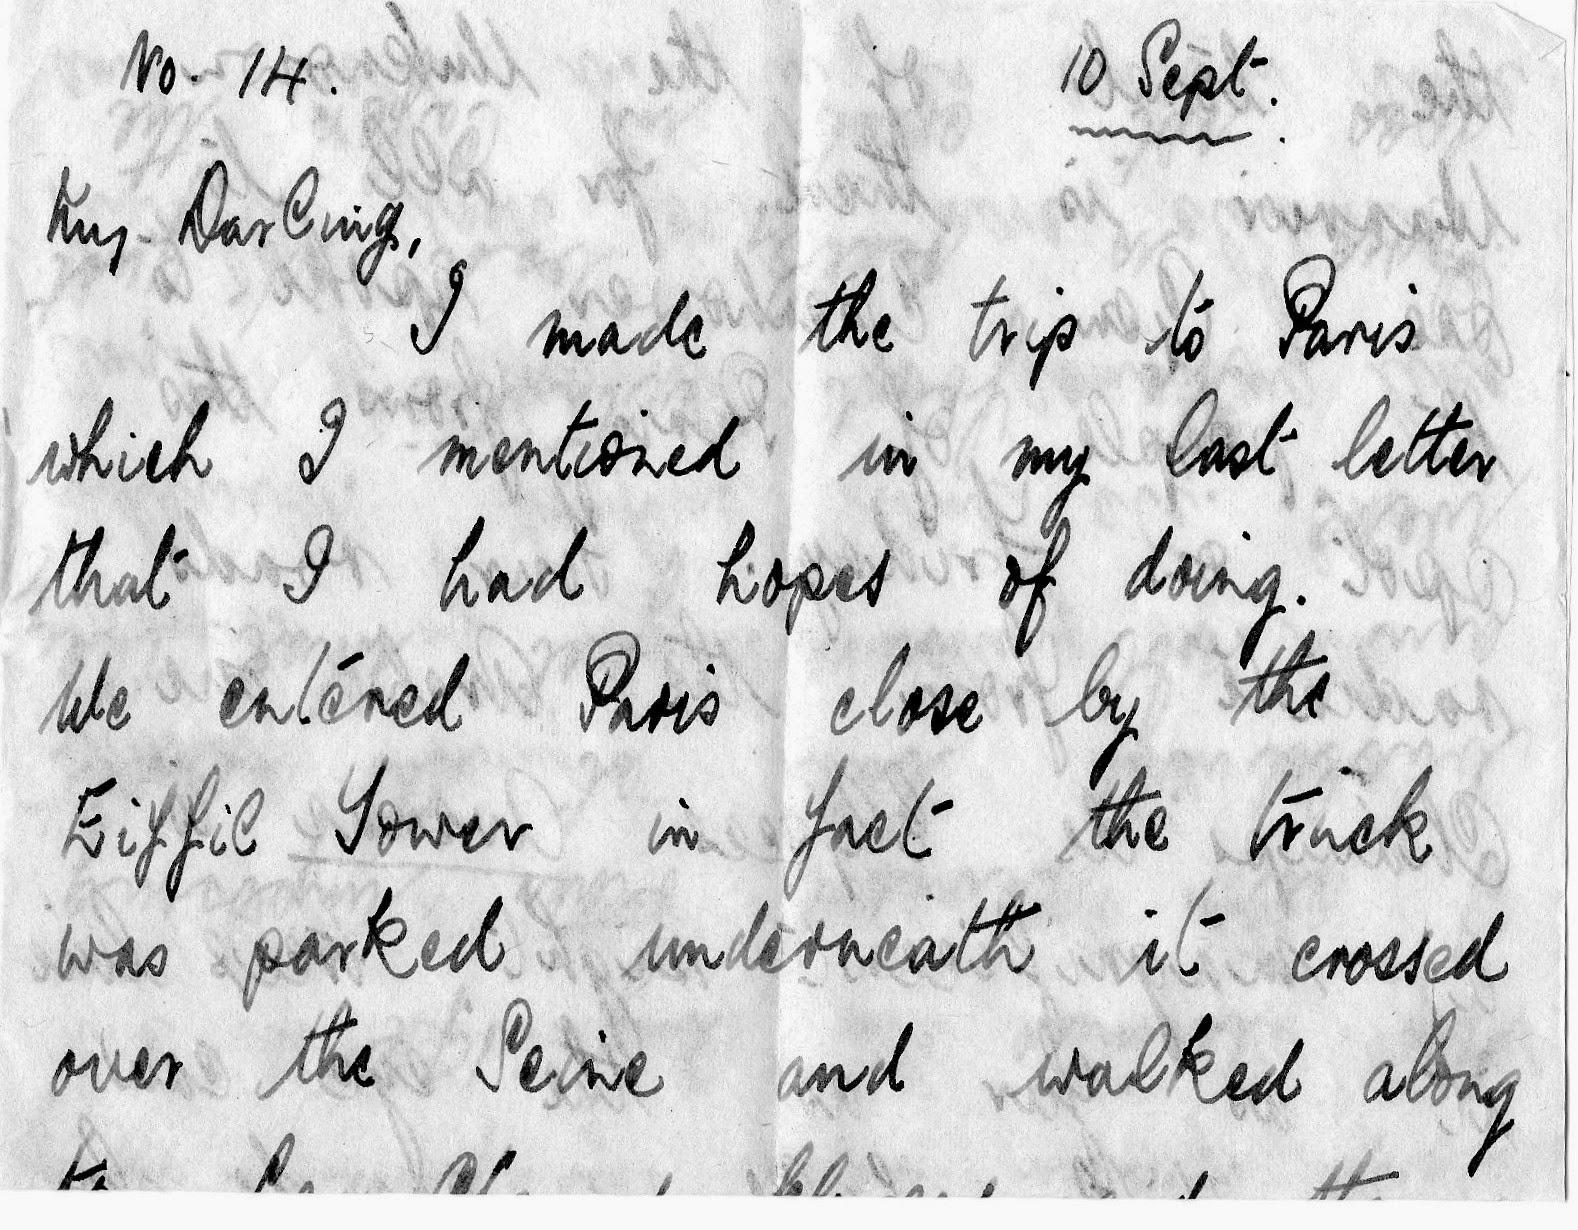 No. 14. 10 Sept.
My Darling,
I made the trip to Paris
which I mentioned in my last letter
that I had hopes of doing.
We entered Paris close by the
Eiffil Tower in fact the truck
was parked underneath it crossed
over the Seine and walked along